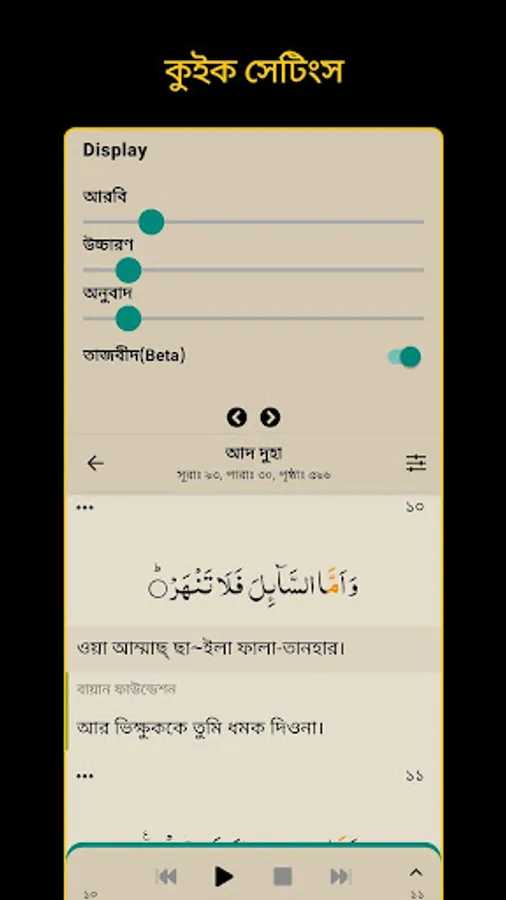 কুইক সেটিংস
Display
আরবি
উচ্চারণ
অনুবাদ
তাজবীদ(Beta)
আদ দুহা
সূরাঃ ৯৩, পারাঃ ৩০, পৃষ্ঠাঃ ৫৯৬
১০
وَاَمَّا السَّآئِلَ فَلَا تَنْهَرْؕ
ওয়া আম্মাছ্ ছা~ইলা ফালা-তানহার।
বায়ান ফাউন্ডেশন
আর ভিক্ষুককে তুমি ধমক দিওনা।
১১
১০
১১